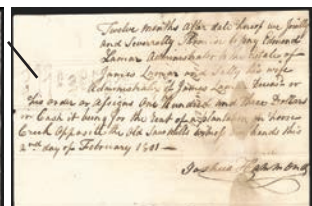 Twelve months after date hereof we Jointly
and Severally Promise to pay Edmond
Lamar Administrator to the Estates of
James Lamar and Sally his wife
Administratrix of James Lamar Deceast or
his order or assigns One Hundred and three Dollars
or Cash it being for the Rent of a plantation on Horses
Creek Opposite the Old Sawmills Witness hands this
2nd day of February 1801 —
Joshua Hammond